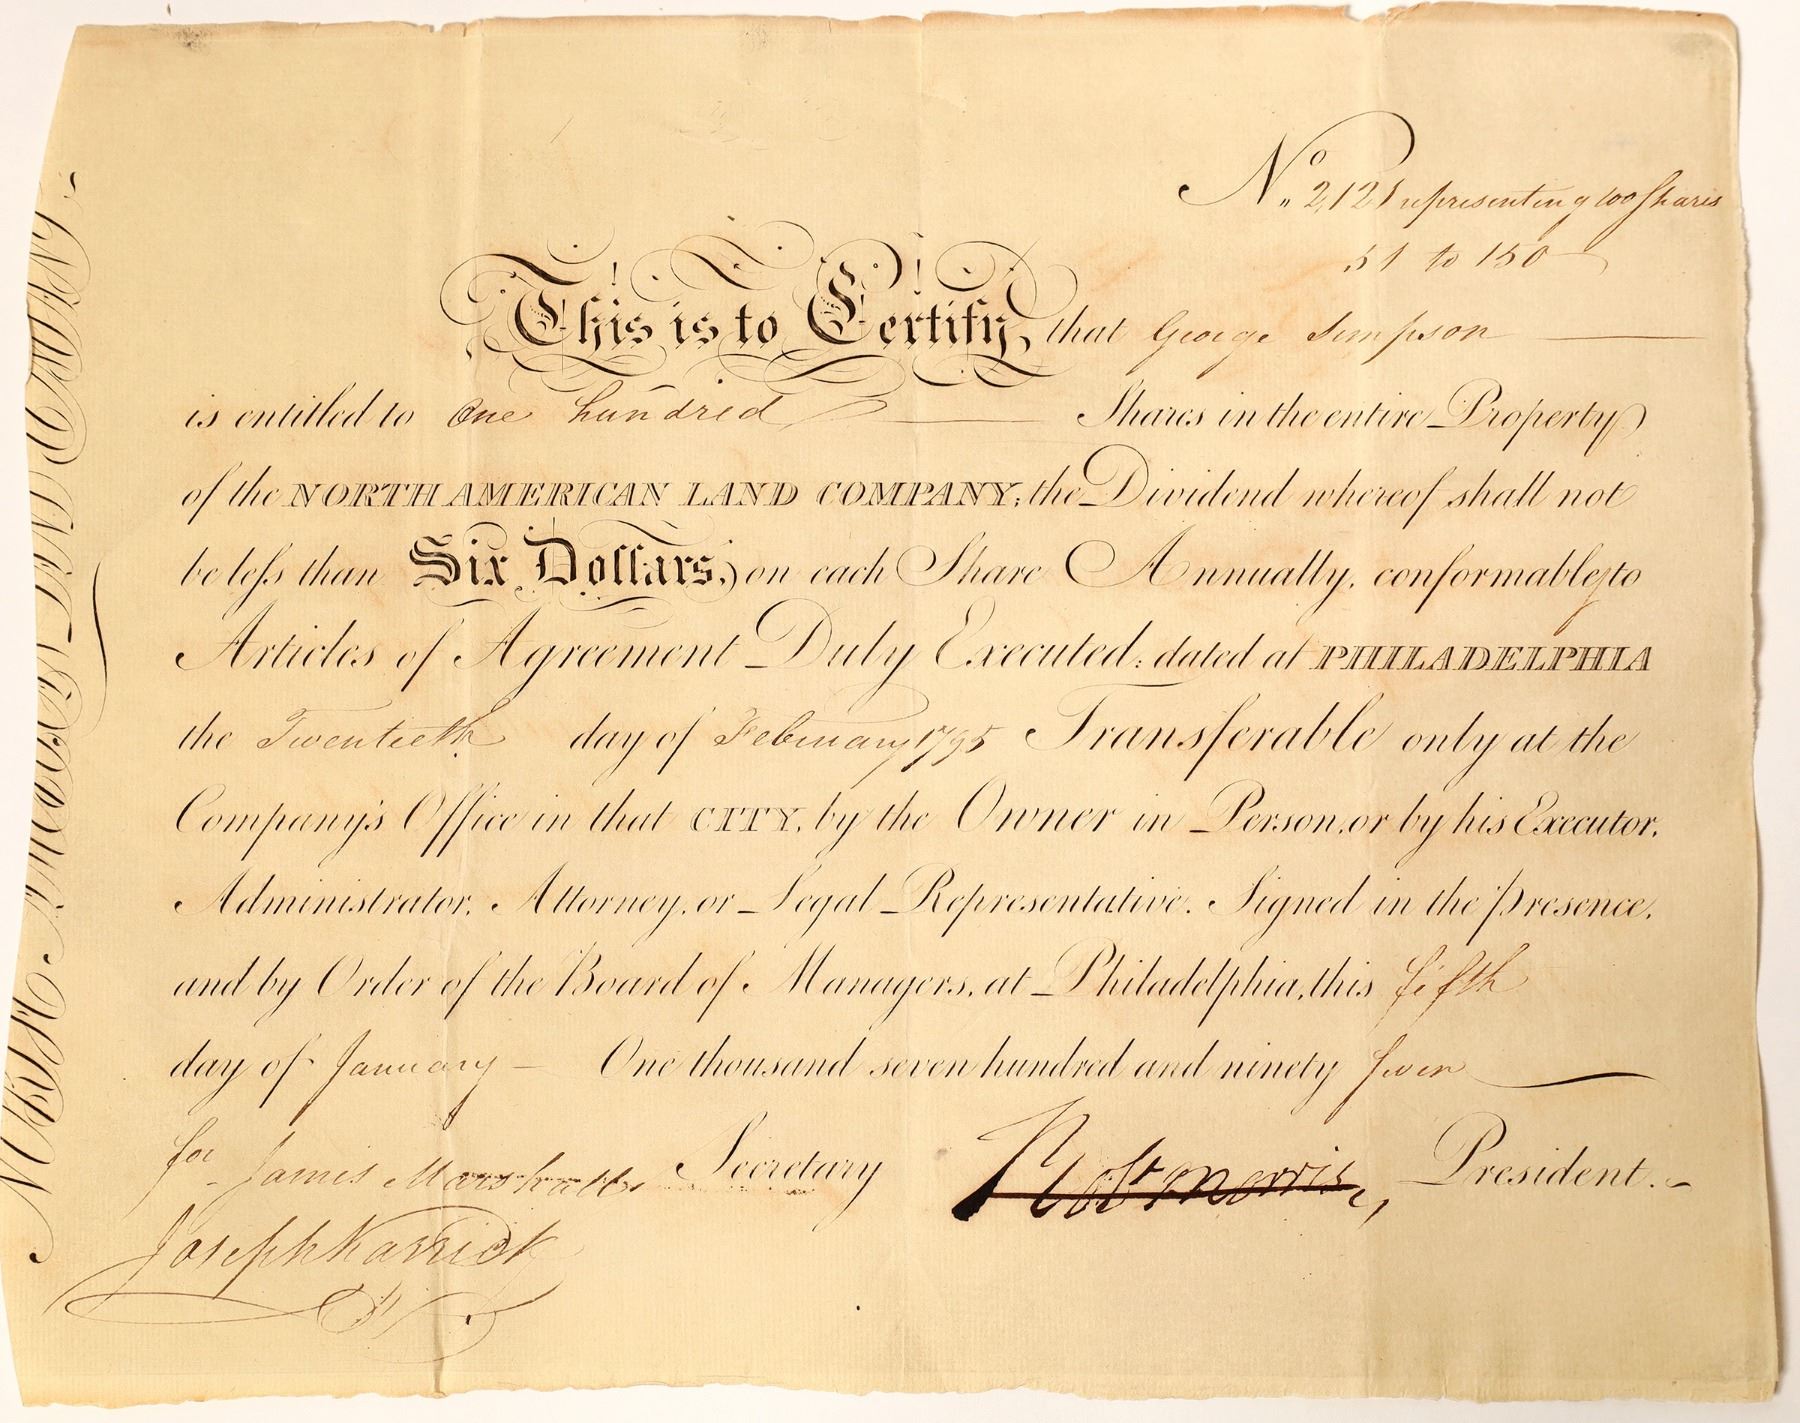 No. 2,121 representing 100 Shares
51 to 150
This is to Certify, that George Simpson
is entitled to One hundred Shares in the entire Property
of the NORTH AMERICAN LAND COMPANY; the Dividend whereof shall not
be less than Six Dollars, on each Share Annually, conformably to
Articles of Agreement Duly Executed: dated at PHILADELPHIA
the Twentieth day of February 1795 Transferable only at the
Company's Office in that CITY, by the Owner in Person, or by his Executor,
Administrator, Attorney, or Legal Representative. Signed in the presence,
and by Order of the Board of Managers, at Philadelphia, this fifth
day of January One thousand seven hundred and ninety
for James Marshall, Secretary Robt Morris, President.
Joseph Karrick